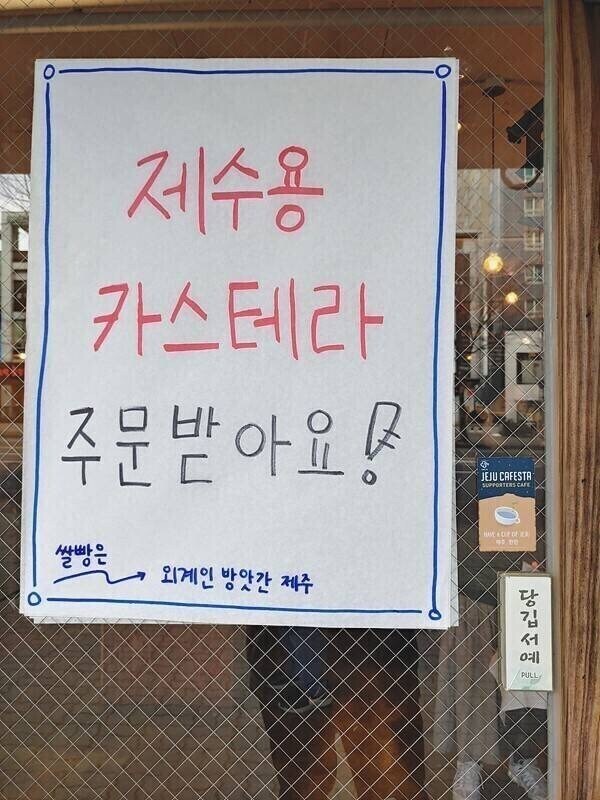 제수용
카스테라
주문받아요!
쌀빵은
→ 외계인 방앗간 제주
JEJU CAFESTA
SUPPORTERS CAFE
HAVE A CUP OF JEJU
당김서예
PULL